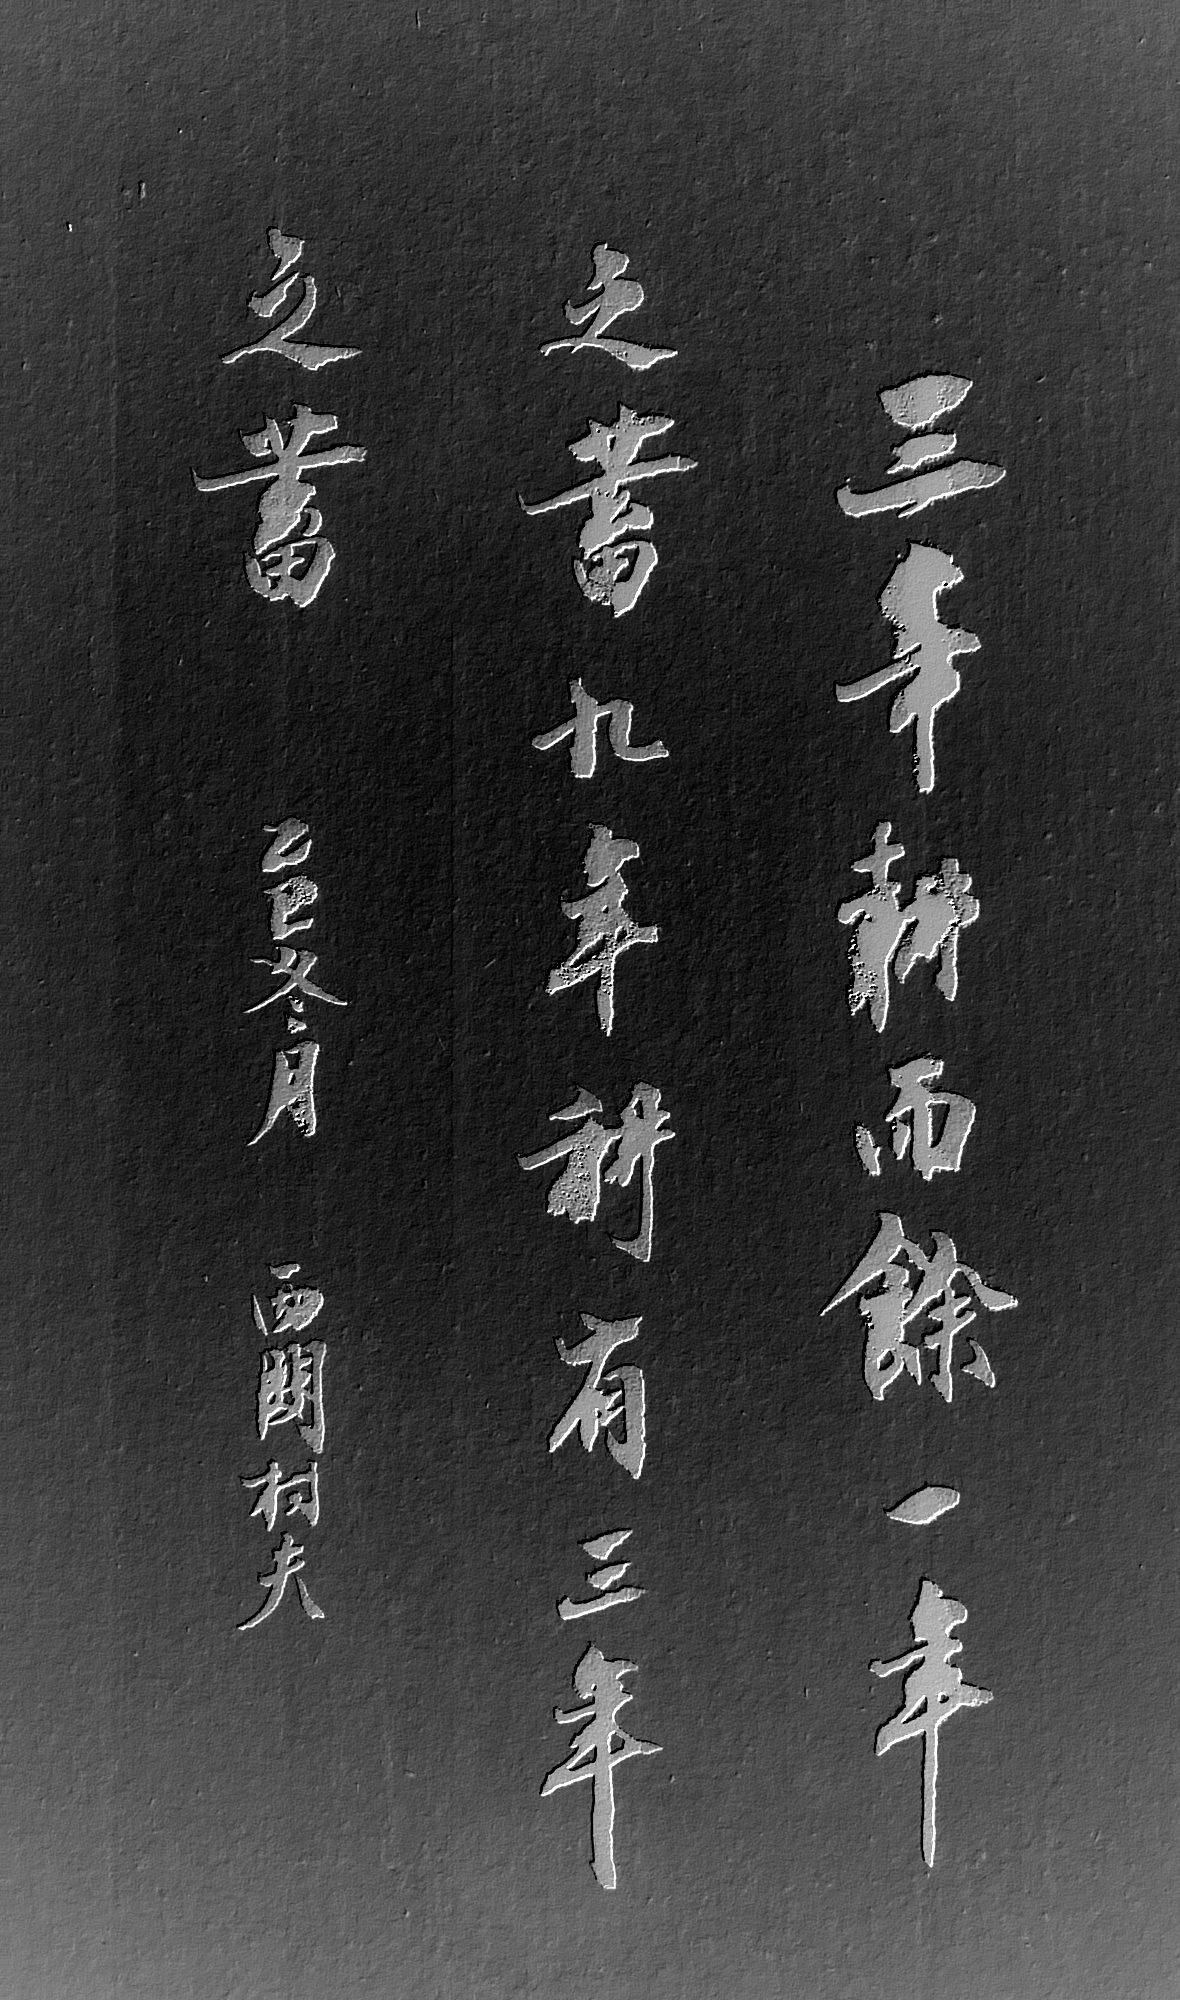 三年耕而餘一年
之蓄九年耕有三年
之蓄 乙巳冬月 西關村夫